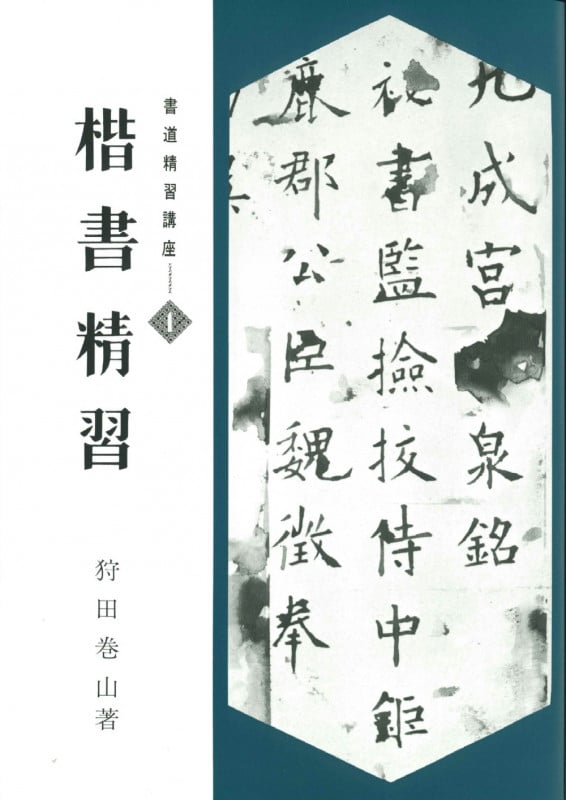 九成宮泉銘
祕書監撿挍侍中鉅
鹿郡公臣魏徵奉
書道精習講座 1
楷書精習
狩田巻山著